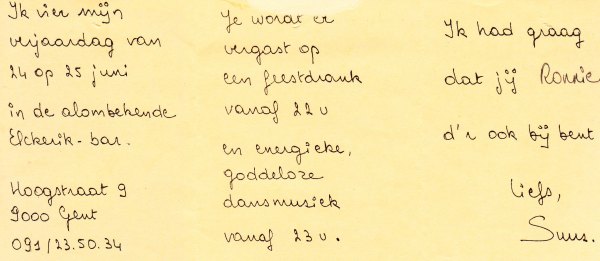 Ik vier mijn
verjaardag van
24 op 25 juni
in de alombekende
Elckerik-bar.
Hoogstraat 9
9000 Gent
091/23.50.34
Je wordt er
vergast op
een feestdrank
vanaf 22u
en energieke,
goddeloze
dansmuziek
vanaf 23u.
Ik had graag
dat jij Ronnie
d'r ook bij bent
liefs,
Suus.